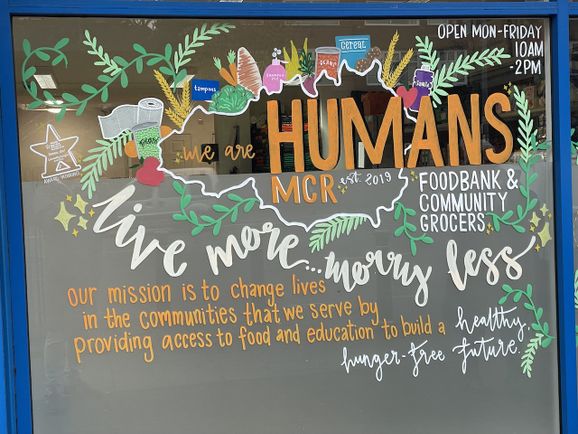 OPEN MON-FRIDAY
10AM
-2PM
CEREAL
BEANS
SHAMPOO
tampons
we are
HUMANS
MCR est. 2019
FOODBANK &
COMMUNITY
GROCERS
live more...morry less
our mission is to change lives
in the communities that we serve by
providing access to food and education to build a healthy,
hunger-free future.